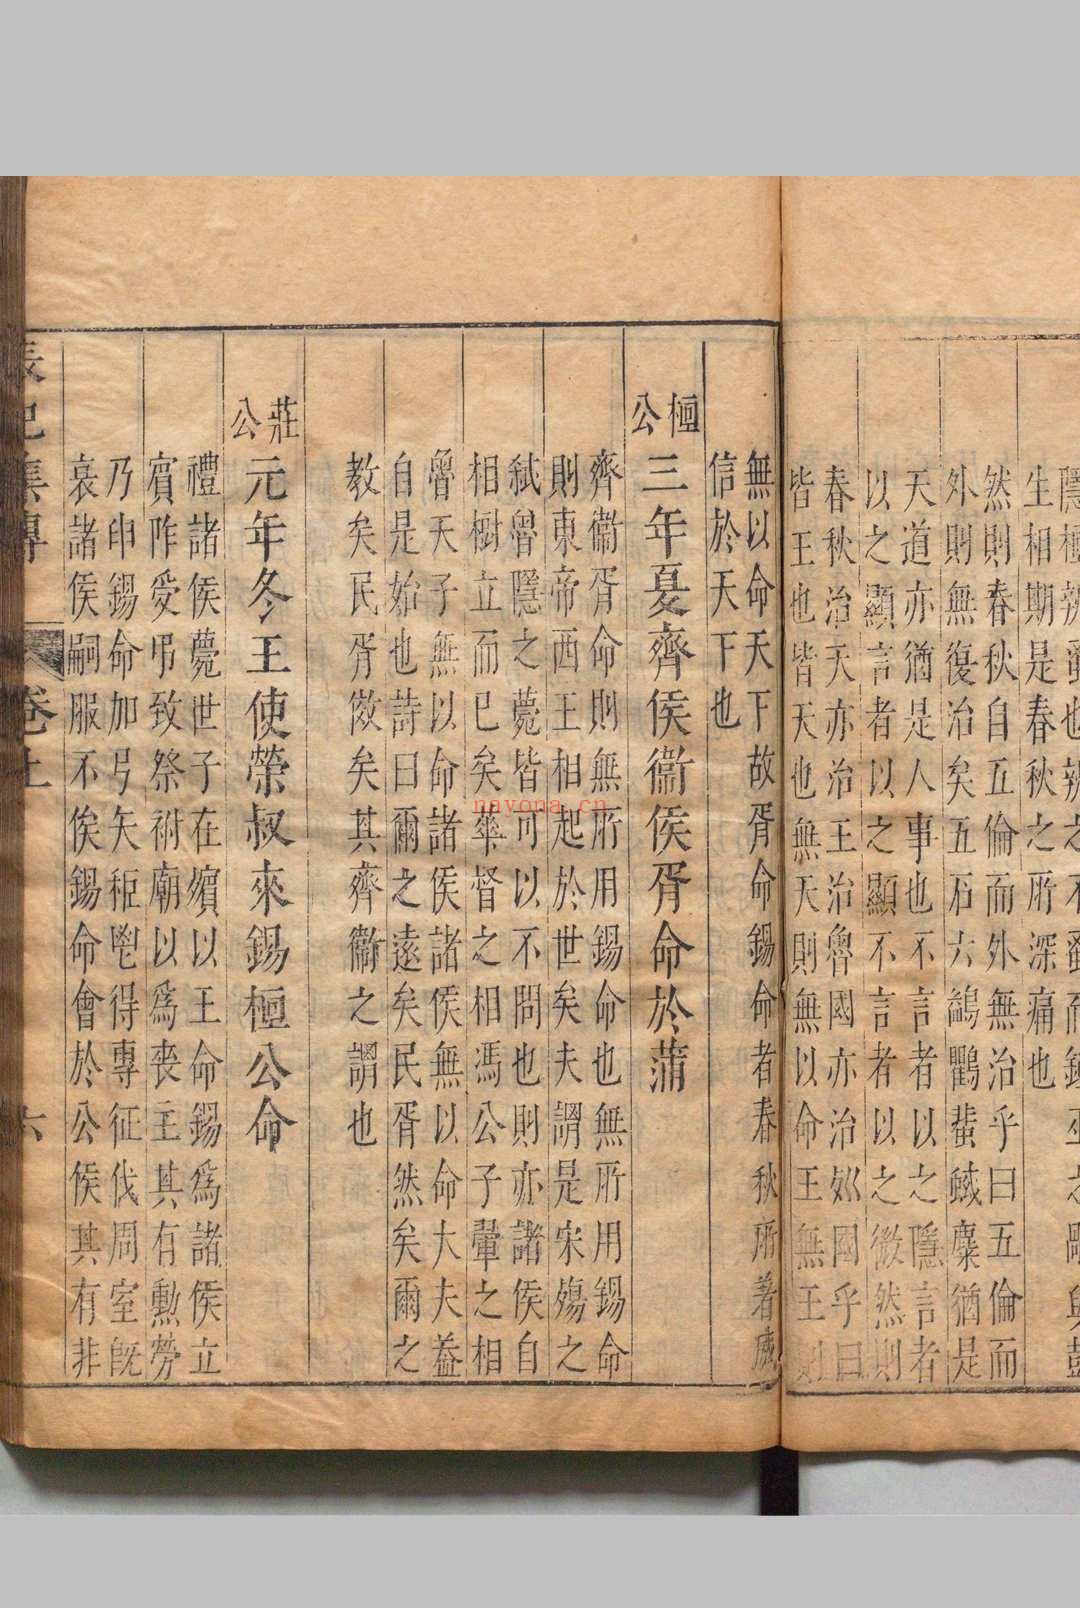 生相期是春秋之所深痛也
然則春秋自五倫而外無治乎曰五倫而
外則無復治矣五石六鷁鸜蜚蜮麋猶是
天道亦猶是人事也不言者以之隱言者
以之顯言者以之顯不言者以之微然則
春秋治天亦治王治魯國亦治列國乎曰
皆王也皆天也無天則無以命王無王則
無以命天下故胥命錫命者春秋所著威
信於天下也
桓公
三年夏齊侯衞侯胥命於蒲
齊衞胥命則無所用錫命也無所用錫命
則東帝西王相起於世矣夫謂是宋殤之
弒魯隱之薨皆可以不問也則亦諸侯自
相樹立而已矣華督之相馮公子翬之相
魯天子無以命諸侯諸侯無以命大夫蓋
自是始也詩曰爾之遠矣民胥然矣爾之
教矣民胥傚矣其齊衞之謂也
莊公
元年冬王使榮叔來錫桓公命
禮諸侯薨世子在殯以王命錫爲諸侯立
賓阼受弔致祭祔廟以爲喪主其有勲勞
乃申錫命加弓矢秬鬯得專征伐周室旣
衰諸侯嗣服不俟錫命會於公侯其有非
表記集傳 卷上 六
navona.cn